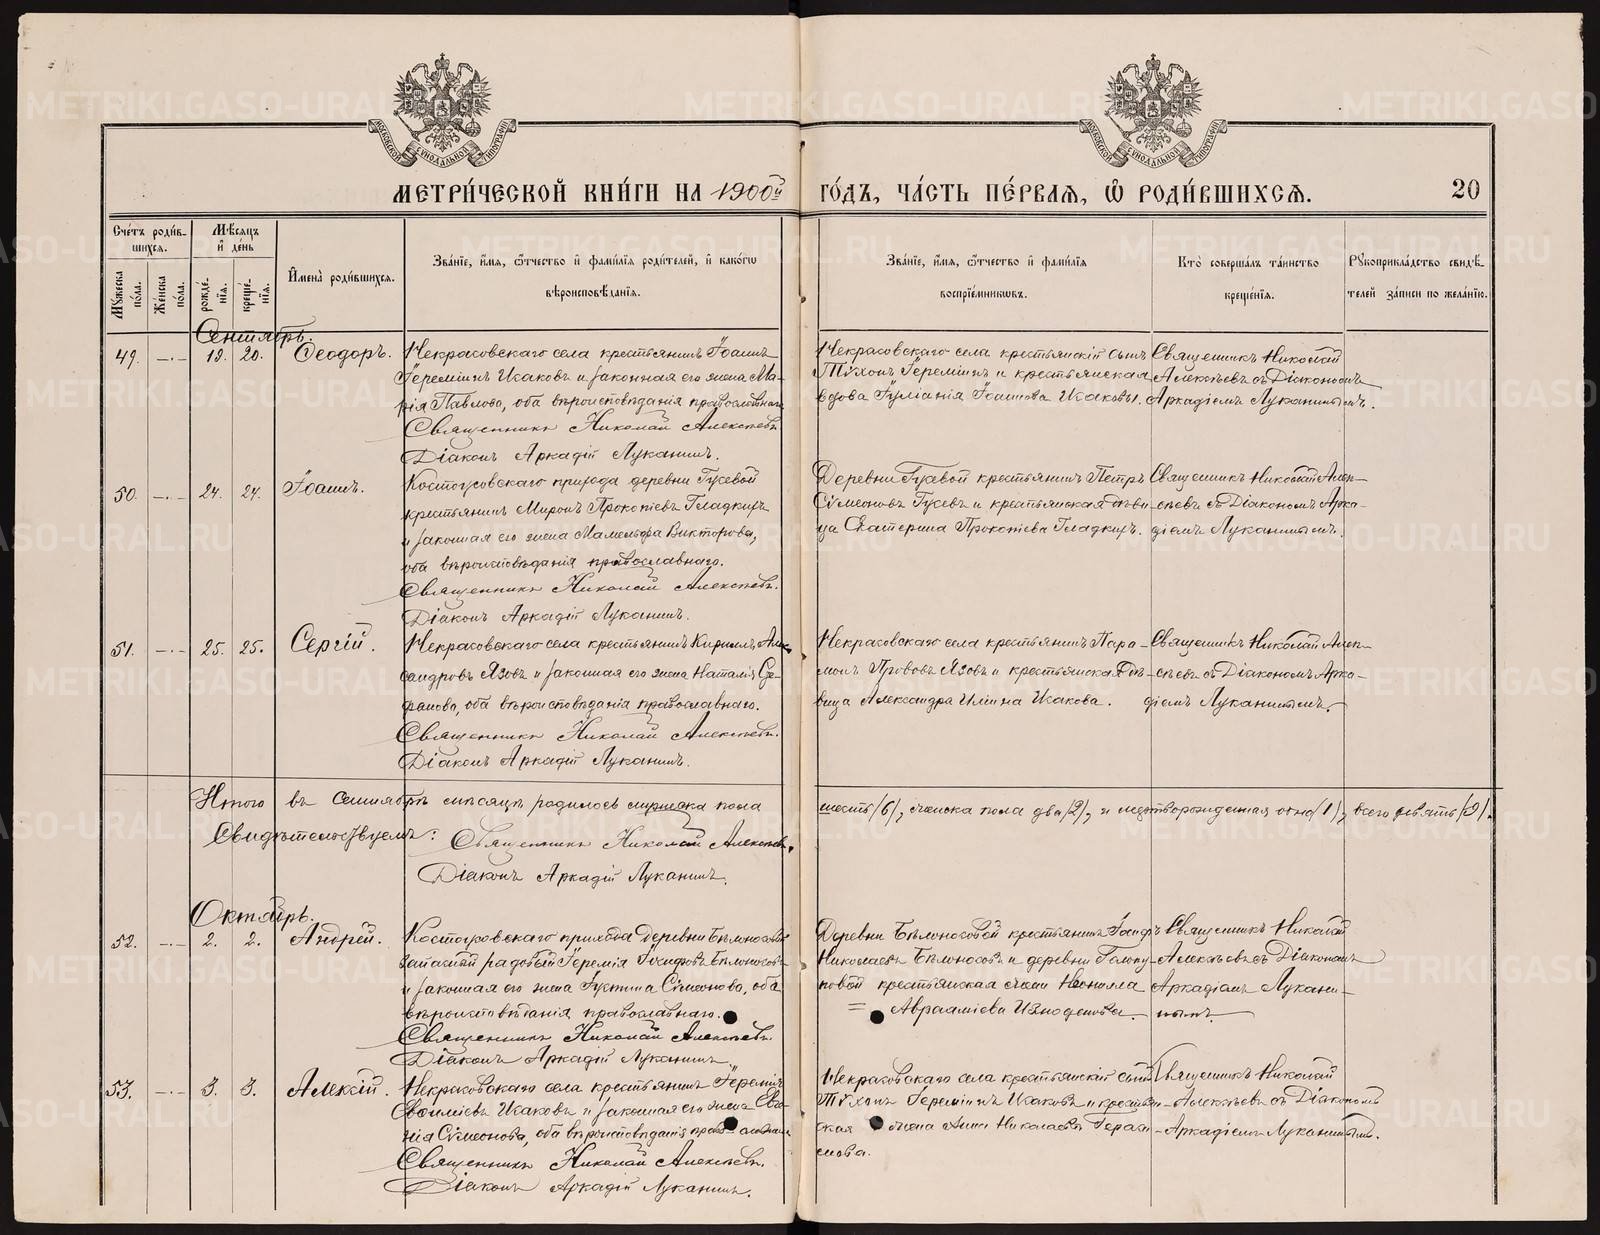 МОСКОВСКОЙ СѴНОДАЛЬНОЙ ТИПОГРАФІИ
МОСКОВСКОЙ СѴНОДАЛЬНОЙ ТИПОГРАФІИ
МЕТРИ́ЧЕСКОЙ КНИ́ГИ НА 1900й ГО́ДЪ, ЧА́СТЬ ПЕ́РВАЯ, Ѡ РОДИ́ВШИХСЯ. 20
Сче́тъ роди́в-
шихся.
Мѣ́сяцъ
и҆ де́нь
Му́жеска по́ла.
Же́нска по́ла.
рожде́-
нїя.
креще́-
нїя.
И҆мена̀ роди́вшихся.
Зва́нїе, и҆́мя, ѻ҆́тчество и҆ фами́лїя роди́телей, и҆ како́гѡ
вѣроисповѣ́данїя.
Зва́нїе, и҆́мя, ѻ҆́тчество и҆ фами́лїя
воспрїе́мниковъ.
Кто̀ соверша́лъ та́инство
креще́нїя.
Рꙋкоприкла́дство свидѣ́-
телей за́писи по жела́нїю.
Сентябрь.
49. —·— 19. 20. Ѳеодоръ.
Некрасовскаго села крестьянинъ Іоаннъ
Іереміинъ Исаковъ и законная его жена Ма-
рія Павлова, оба вѣроисповѣданія православнаго
Священникъ Николай Алексѣевъ
Діаконъ Аркадій Луканинъ.
Некрасовскаго села крестьянскій сынъ
Тѵхонъ Іереміинъ и крестьянская
вдова Іуліанія Іоаннова Исаковы.
Священникъ Николай
Алексѣевъ съ Діакономъ
Аркадіемъ Луканинымъ.
50. —·— 24. 24. Іоаннъ.
Костоусовскаго прихода деревни Гусевой
крестьянинъ Миронъ Прокопіевъ Гладкихъ
и законная его жена Мамельфа Викторова,
оба вѣроисповѣданія православнаго.
Священникъ Николай Алексѣевъ.
Діаконъ Аркадій Луканинъ.
Деревни Гусевой крестьянинъ Петръ
Сѵмеоновъ Гусевъ и крестьянская дѣви-
ца Екатерина Прокопіева Гладкихъ.
Священникъ Николай Алек-
сѣевъ съ Діакономъ Арка-
діемъ Луканинымъ.
51. —·— 25. 25. Сергій.
Некрасовскаго села крестьянинъ Кириллъ Алек-
сандровъ Язовъ и законная его жена Наталія Сте-
фанова, оба вѣроисповѣданія православнаго.
Священникъ Николай Алексѣевъ.
Діаконъ Аркадій Луканинъ.
Некрасовскаго села крестьянинъ Пара-
монъ Прововъ Язовъ и крестьянская дѣ-
вица Александра Иліина Исакова.
Священникъ Николай Алек-
сѣевъ съ Діакономъ Арка-
діемъ Луканинымъ.
Итого въ Сентябрѣ мѣсяцѣ родилось мужеска пола шесть (6), женска пола два (2), и мертворожденная одна (1), всего девять (9).
Свидѣтельствуемъ: Священникъ Николай Алексѣевъ,
Діаконъ Аркадій Луканинъ.
Октябрь.
52. —·— 2. 2. Андрей.
Костоусовскаго прихода деревни Бѣлоносовой
запасный рядовый Іеремія Іосифовъ Бѣлоносовъ
и законная его жена Іустина Сѵмеонова, оба
вѣроисповѣданія православнаго.
Священникъ Николай Алексѣевъ.
Діаконъ Аркадій Луканинъ.
Деревни Бѣлоносовой крестьянинъ Іосифъ
Николаевъ Бѣлоносовъ и деревни
крестьянская жена Неонилла
Авраамiева
Священникъ Николай
Алексѣевъ съ Діакономъ
Аркадіемъ Лукани-
нымъ.
53. —·— 3. 3. Алексій.
Некрасовскаго села крестьянинъ Іереміи
Исаковъ и законная его жена Ев-
Сѵмеонова, оба вѣроисповѣданія православнаго
Священникъ Николай Алексѣевъ.
Діаконъ Аркадій Луканинъ.
Некрасовскаго села крестьянскій сынъ
Тѵхонъ Іереміинъ Исаковъ и крестьян-
ская жена Анна Николаева Гераси-
мова.
Священникъ Николай
Алексѣевъ съ Діакономъ
Аркадіемъ Луканинымъ.